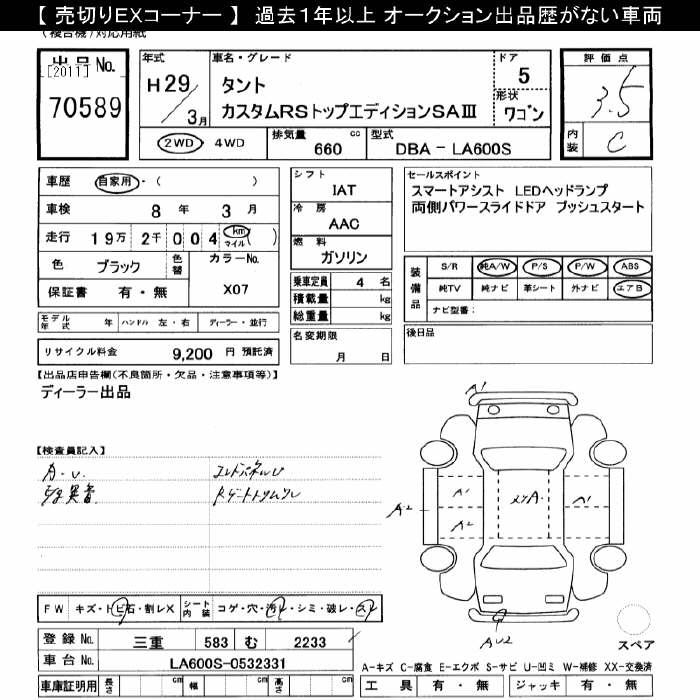 【 売切りEXコーナー 】 過去1年以上 オークション出品歴がない車両
(複合機)対応用紙
出品No. [2011] 70589
年式 H29/3月
車名・グレード タント カスタムRSトップエディションSAⅢ
ドア 5
形状 ワゴン
評価点 3.5
内装 C
2WD ・ 4WD
排気量 660 cc
型式 DBA - LA600S
車歴 自家用・( )
車検 8年 3月
走行 19万 2千 0 0 4 km マイル
色 ブラック
色替
カラーNo. X07
保証書 有・無
シフト IAT
冷房 AAC
燃料 ガソリン
乗車定員 4 名
積載量 kg
総重量 kg
名変期限 月 日
セールスポイント
スマートアシスト LEDヘッドランプ
両側パワースライドドア プッシュスタート
装備品 S/R 純A/W P/S P/W ABS
純TV 純ナビ 革シート 外ナビ エアB
ナビ型番:
後日品
モデル年式 年 ハンドル 左・右 ディーラー・並行
リサイクル料金 9,200 円 預託済
【出品店申告欄(不良箇所・欠品・注意事項等)】
ディーラー出品
【検査員記入】
A・U
異音
A1
A2
A1
A2
A1
AU2
スペア
FW キズ・トビ石・割レX
シート内装 コゲ・穴・汚レ・シミ・破レ・スレ
登録No. 三重 583 む 2233
車台No. LA600S-0532331
車庫証明用 長さ cm 幅 cm 高さ cm
A-キズ C-腐食 E-エクボ S-サビ U-凹ミ W-補修 XX-交換済
工具 有・無 ジャッキ 有・無